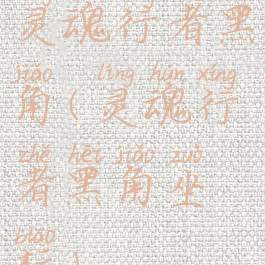 灵魂行者黑
jiǎo líng hún xíng
角(灵魂行
zhě hēi jiǎo zuò
者黑角坐
biāo